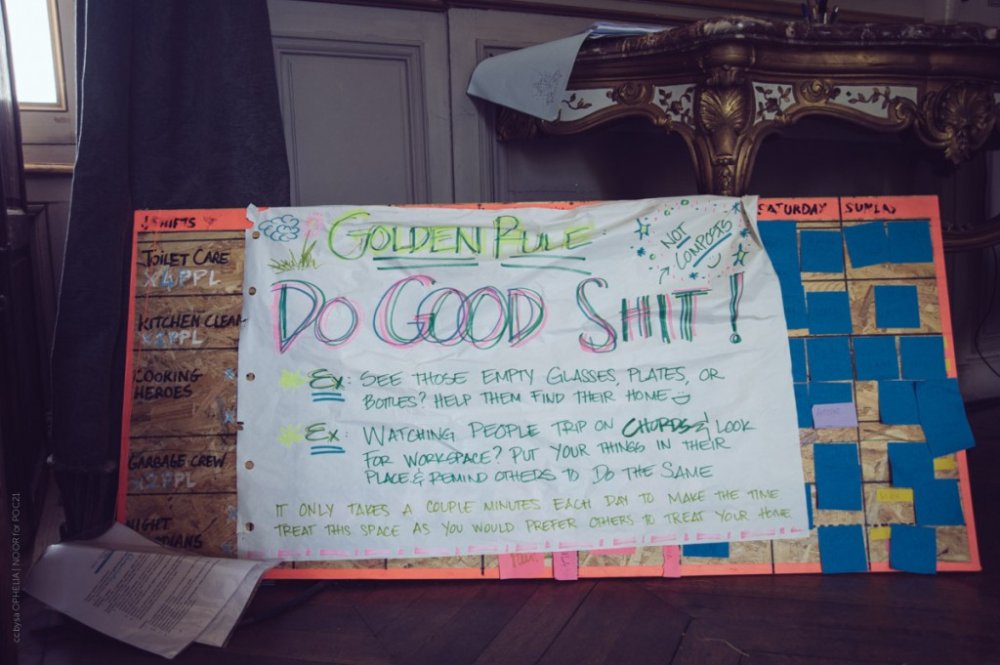 SHIFTS
TOILET CARE
X4PPL
KITCHEN CLEAN
COOKING
HEROES
GARBAGE CREW
X2 PPL
NIGHT
GOLDEN RULE
NOT
COMPOSTS
DO GOOD SHIT!
EX: SEE THOSE EMPTY GLASSES, PLATES, OR
BOTTLES? HELP THEM FIND THEIR HOME
EX: WATCHING PEOPLE TRIP ON CHORDS & LOOK
FOR WORKSPACE? PUT YOUR THINGS IN THEIR
PLACE & REMIND OTHERS TO DO THE SAME
IT ONLY TAKES A COUPLE MINUTES EACH DAY TO MAKE THE TIME
TREAT THIS SPACE AS YOU WOULD PREFER OTHERS TO TREAT YOUR HOME
SATURDAY SUNDAY
ccbysa OPHELIA | NOOR for POC21